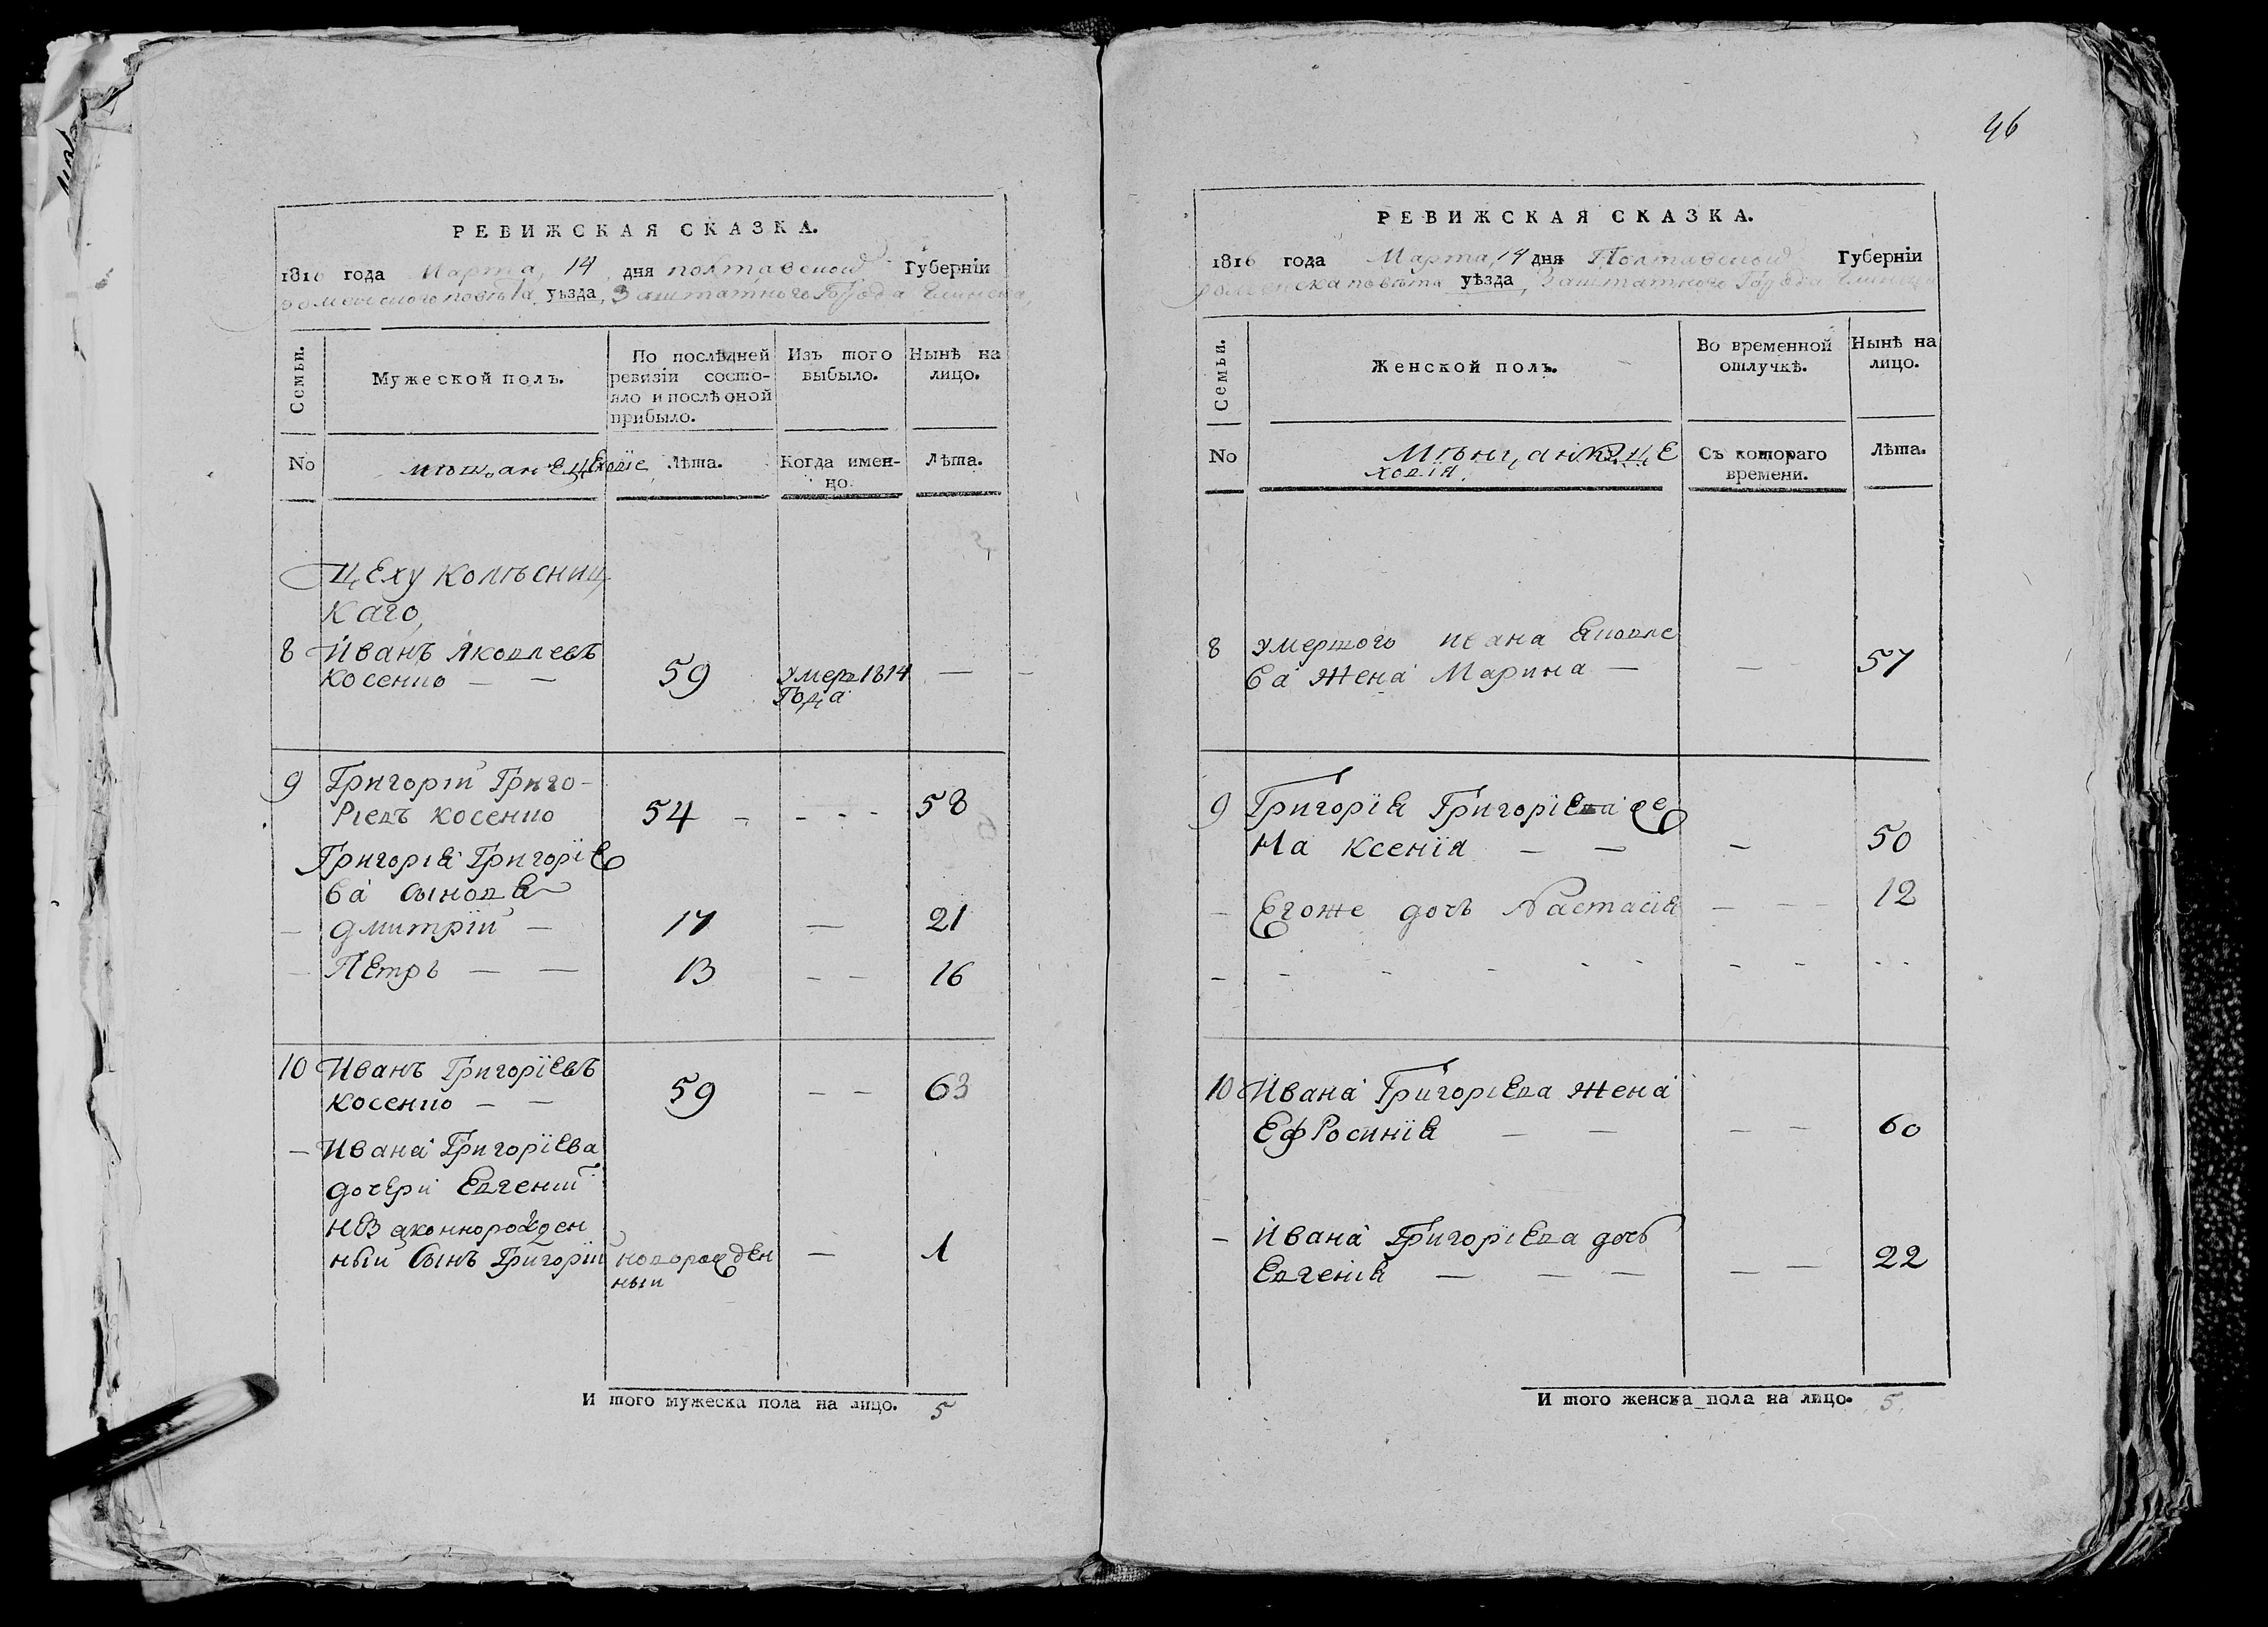 46
РЕВИЖСКАЯ СКАЗКА.
1816 года Марта, 14 дня полтавской Губерніи
роменского повѣта уѣзда, Заштатного Города Глинска,
Семьи.
Мужеской полъ.
По послѣдней ревизіи состояло и послѣ оной прибыло.
Изъ того выбыло.
Нынѣ на лицо.
No
мѣщане цеховіе
Лѣта.
Когда именно.
Лѣта.
Цеху колѣсниц
каго,
8 Иванъ Яковлевъ
косенко — — 59 умер 1814 —
года
9 Григорій Григо-
ріевъ косенко 54 - - - - 58
Григорія Григоріе
ва сыновя
— дмитрій — 17 — 21
— Петръ — — 13 — — 16
10 Иванъ Григоріевъ
косенко — — 59 — — 63
— Ивана Григоріева
дочери Евгеніи
незаконнорожден
ный сынъ Григорій новорожден — 1
ный
И того мужеска пола на лицо. 5
РЕВИЖСКАЯ СКАЗКА.
1816 года Марта, 14 дня Полтавской Губерніи
роменска повѣта уѣзда, Заштатного Города Глинска
Семьи.
Женской полъ.
Во временной отлучкѣ.
Нынѣ на лицо.
No
Мѣщанки це
ховія.
Съ котораго времени.
Лѣта.
8 умершого ивана Яковле
ва жена Марина — — - 57
9 Григорія Григоріева же
на Ксенія — — — 50
— Егоже дочь Настасія — — — 12
- - - - - - - - - -
10 Ивана Григоріева жена
Ефросинія — — — — 60
— Ивана Григоріева дочь
Евгенія — — — — — 22
И того женска пола на лицо. 5.